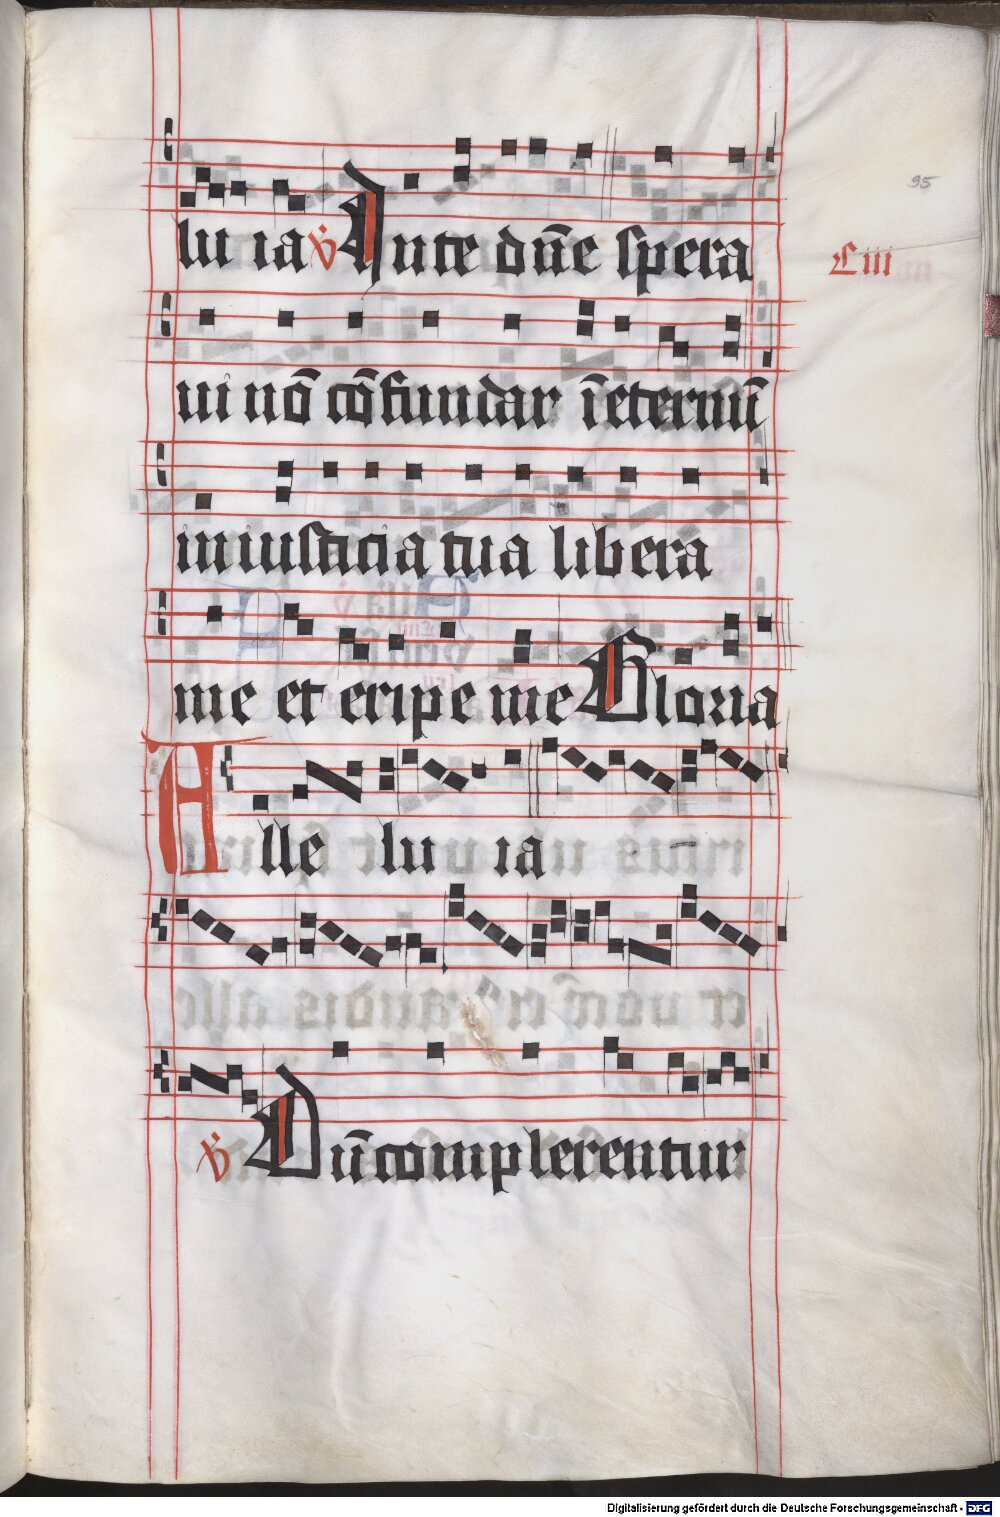 95
lu ia ℣ In te dn̄e spera
Ciii
ui nō cōfundar ī eternū
in iusticia tua libera
me et eripe me Gloria
Alle lu ia
℣ Dū complerentur
Digitalisierung gefördert durch die Deutsche Forschungsgemeinschaft - DFG